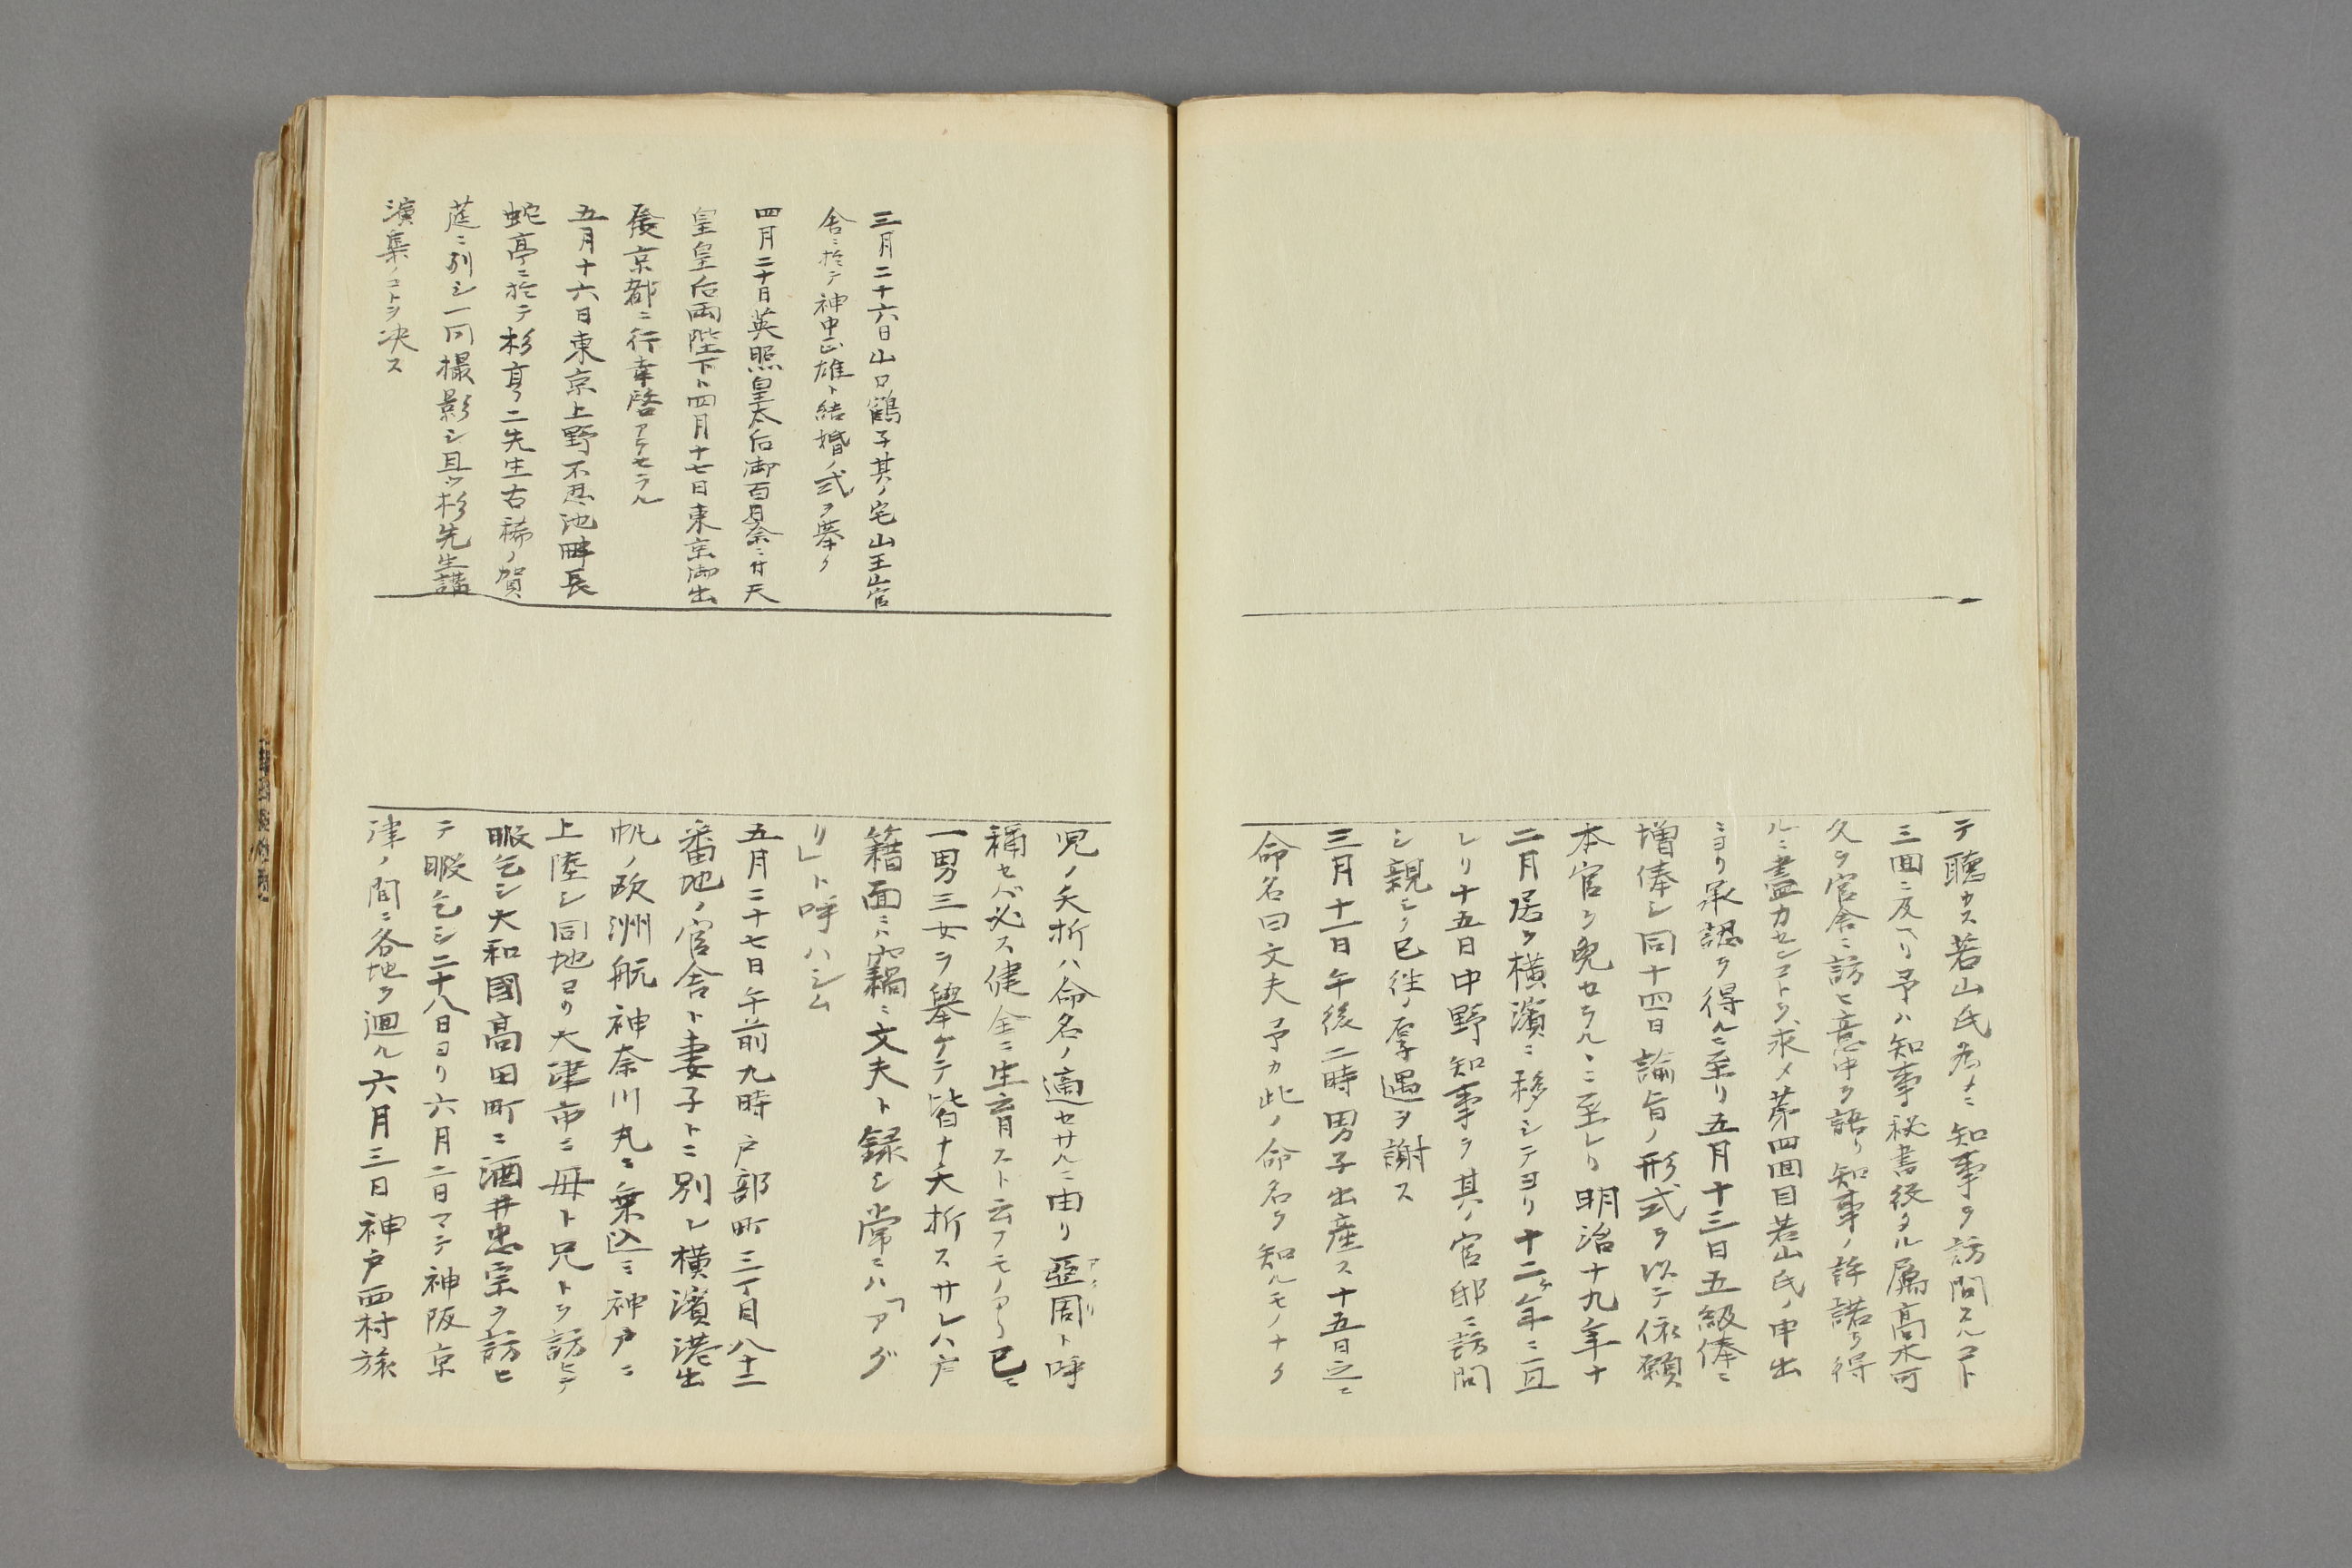 テ聴カス若山氏為メニ知事ヲ訪問スルコト
三回ニ及ヘリ予ハ知事秘書役タル属高木可
久ヲ官舎ニ訪ヒ意中ヲ語リ知事ノ許諾ヲ得
ルニ盡力センコトヲ求メ第四回目若山氏ノ申出
ニヨリ承認ヲ得ルニ至リ五月十三日五級俸ニ
増俸シ同十四日諭旨ノ形式ヲ以テ依願
本官ヲ免セラルヽニ至レリ明治十九年十
二月居ヲ横濱ニ移シテヨリ十二ケ年ニ亘
レリ十五日中野知事ヲ其ノ官邸ニ訪問
シ親シク已往ノ厚遇ヲ謝ス
三月十一日午後二時男子出産ス十五日之ニ
命名曰文夫予カ此ノ命名ヲ知ルモノナク
三月二十六日山口鶴子其ノ宅山王山官
舎ニ於テ神中正雄ト結婚ノ式ヲ挙ク
四月二十日英照皇太后御百日祭ニ付天
皇皇后両陛下ト四月十七日東京御出
發京都ニ行幸啓アラセラル
五月十六日東京上野不忍池畔長
蛇亭ニ於テ杉亨二先生古稀ノ賀
莚ニ列シ一同撮影シ且ツ杉先生講
演集ノコトヲ决ス
児ノ夭折ハ命名ノ適セサルニ由リ亜周ト呼
アグリ
稱セバ必ス健全ニ生育スト云フモノアリ已ニ
一男三女ヲ擧ケテ皆ナ夭折スサレハ戸
籍面ニハ窃ニ文夫ト録シ常ニハ「アグ
リ」ト呼ハシム
五月二十七日午前九時戸部町三丁目八十二
番地ノ官舎ト妻子トニ別レ横濱港出
帆ノ欧洲航神奈川丸ニ乗込ミ神戸ニ
上陸シ同地ヨリ大津市ニ母ト兄トヲ訪ヒテ
暇乞シ大和國高田町ニ酒井忠宗ヲ訪ヒ
テ暇乞シ二十八日ヨリ六月二日マテ神阪京
津ノ間ニ各地ヲ廻ル六月三日神戸西村旅